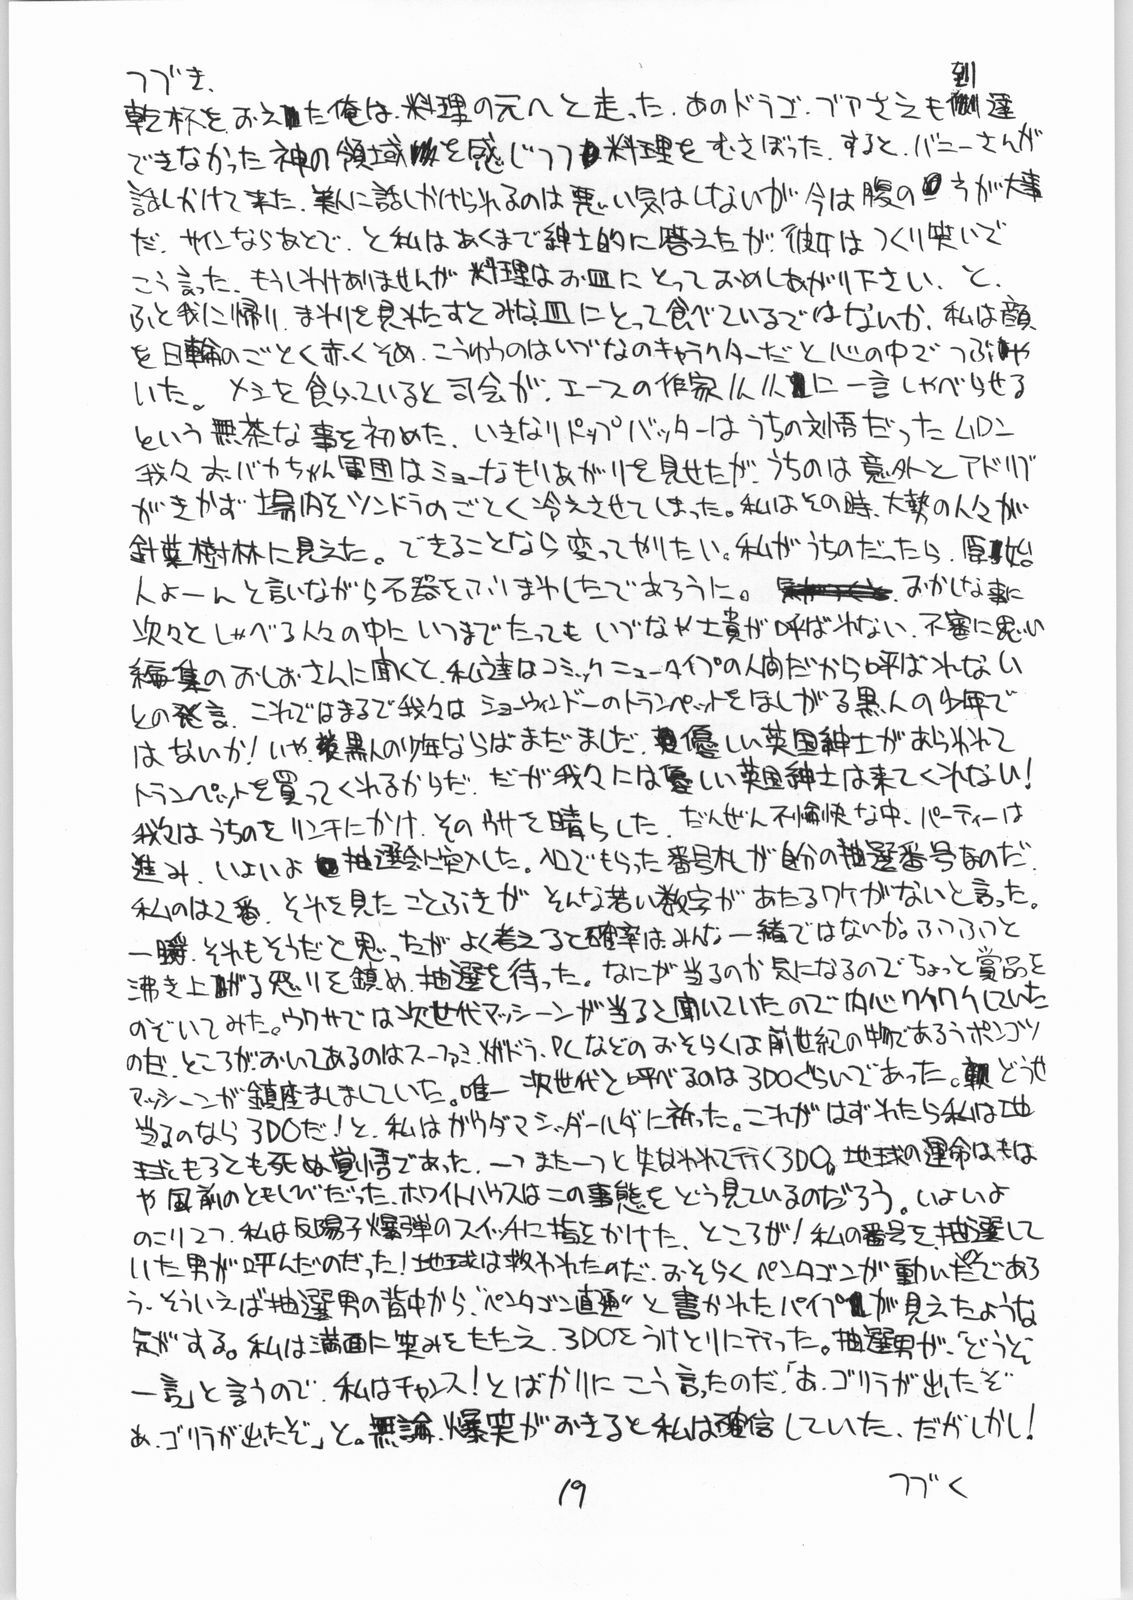 つづき、
乾杯をおえた俺は、料理の元へと走った。あのドラゴ、ブアさえも到達
できなかった神の領域を感じつつ料理をむさぼった。すると、バニーさんが
話しかけて来た。美人に話しかけられるのは悪い気はしないが今は腹の方が大事
だ。サインならあとで、と私はあくまで紳士的に答えたが、彼女はつくり笑いで
こう言った。もうしわけありませんが料理はお皿にとっておめしあがり下さい、と、
ふと我に帰り、まわりを見わたすとみな皿にとって食べているではないか、私は顔
を日輪のごとく赤くそめ、こうゆうのはいづなのキャラクターだと心の中でつぶや
いた。メシを食らっていると司会が、エースの作家一人一人に一言しゃべらせる
という無茶な事を初めた、いきなりトップバッターはうちの刘悟だった
我々おバカちゃん軍団はミョーなもりあがりを見せたが、うちのは意外とアドリブ
がきかず場内をツンドラのごとく冷えさせてしまった。私はその時、大勢の人々が
針葉樹林に見えた。できることなら変ってやりたい。私がうちのだったら、原始
人よーんと言いながら石器をふりまわしたであろうに。おかしな事に
次々としゃべる人々の中にいつまでたってもいづなや士貴が呼ばれない、不審に思い
編集のおしおさんに聞くと、私達はコミックニュータイプの人間だから呼ばれない
との発言、これではまるで我々はショーウィンドーのトランペットをほしがる黒人の少年で
はないか!いや、黒人の少年ならばまだましだ、優しい英国紳士があらわれて
トランペットを買ってくれるからだ、だが我々には優しい英国紳士は来てくれない!
我々はうちのをリンチにかけ、そのウサを晴らした、だんぜん不愉快な中、パーティーは
進み、いよいよ抽選会に突入した。入口でもらった番号札が自分の抽選番号なのだ、
私のは2番、それを見たことぶきがそんな若い数字があたるワケがないと言った。
一瞬、それもそうだと思ったがよく考えると確率はみんな一緒ではないか。ふつふつと
沸き上げる怒りを鎮め、抽選を待った。なにが当るのか気になるのでちょっと賞品を
のぞいてみた。ウワサでは次世代マッシーンが当ると聞いていたので内心ワクワクしていた
のだ、ところが、おいてあるのはスーファミ、メガドラ、PCなどのおそらくは前世紀の物であろうポンコツ
マッシーンが鎮座ましましていた。唯一次世代と呼べるのは3DOぐらいであった。どうせ
当るのなら3DOだ!と、私はガウダマシッダールダに祈った。これがはずれたら私は地
球もろとも死ぬ覚悟であった、一つまた一つと失なわれて行く3DO。地球の運命はもは
や風前のともしびだった、ホワイトハウスはこの事態をどう見ているのだろう。いよいよ
のこり2つ、私は反陽子爆弾のスイッチに指をかけた、ところが!私の番号を、抽選して
いた男が呼んだのだった!地球は救われたのだ、おそらくペンタゴンが動いたのであろ
う、そういえば抽選男の背中から、“ペンタゴン直通”と書かれたパイプが見えたような
気がする。私は満面に笑みをたたえ、3DOをうけとりに行った。抽選男が、「どうぞ
一言」と言うので、私はチャンス!とばかりにこう言ったのだ、「あ、ゴリラが出たぞ
あ、ゴリラが出たぞ」と。無論、爆笑がおきると私は確信していた、だがしかし!
つづく
19